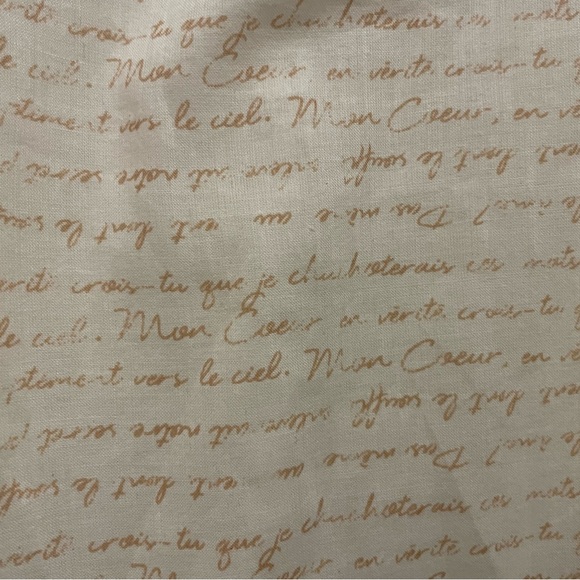 crois-tu que je chuchoterais ces mots
le ciel. Mon Coeur, en vérité crois-tu
vers le ciel. Mon Coeur, en
dont le souffle enlèverait notre secret
Pas même au vent dont le
vérité crois-tu que je chuchoterais ces mots
le ciel. Mon Coeur, en vérité, crois-tu
vers le ciel. Mon Coeur, en
vent dont le souffle enlèverait notre secret
Pas même au vent dont le souffle
vérité crois-tu que je chuchoterais ces mots
Mon Coeur, en vérité crois-tu